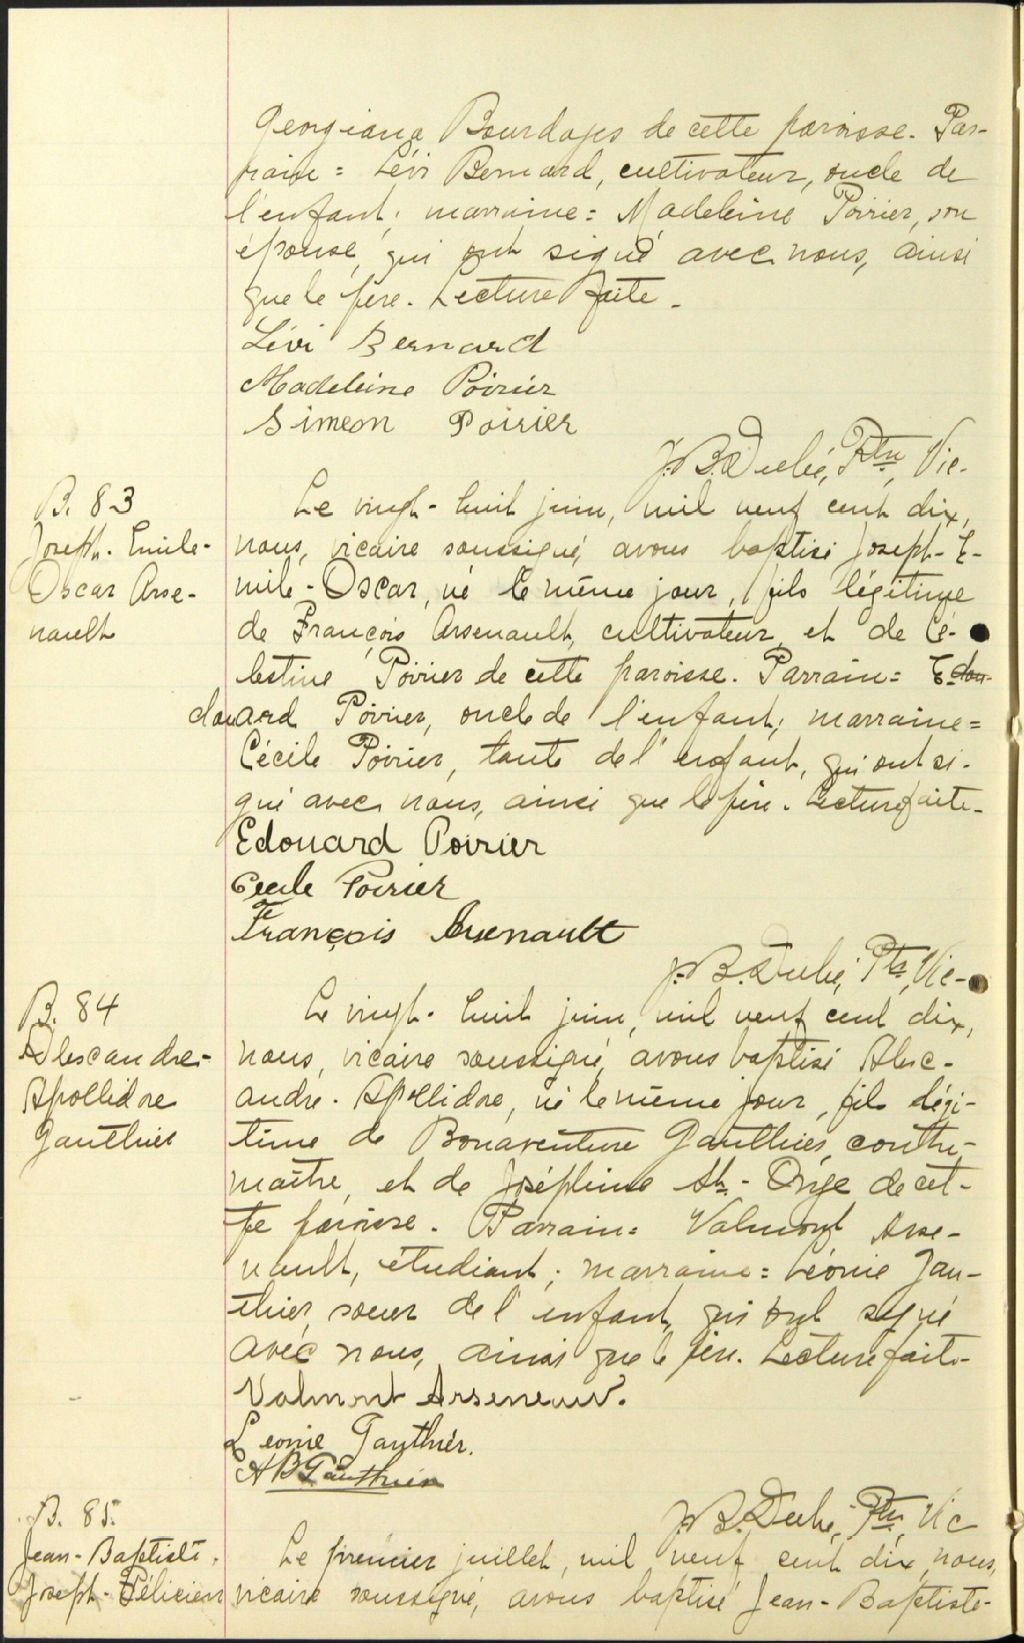 Georgiana Bourdages de cette paroisse. Par-
rain = Lévi Bernard, cultivateur, oncle de
l'enfant; marraine = Madeleine Poirier, son
épouse, qui ont signé avec nous, ainsi
que le père. Lecture faite.
Lévi Bernard
Madeleine Poirier
Simeon Poirier
J.B. Dubé, Ptre, Vic.
B. 83
Joseph-Emile-
Oscar Arse-
nault
Le vingt-huit juin, mil neuf cent dix,
nous, vicaire soussigné, avons baptisé Joseph-E-
mile-Oscar, né le même jour, fils légitime
de François Arsenault, cultivateur, et de Cé-
lestine Poirier de cette paroisse. Parrain = E-dou-
douard Poirier, oncle de l'enfant; marraine =
Cécile Poirier, tante de l'enfant, qui ont si-
gné avec nous, ainsi que le père. Lecture faite.
Edouard Poirier
Cecile Poirier
François Arsenault
J.B. Dubé, Ptre, Vic.
B. 84
Alescandre-
Apollidore
Gauthier
Le vingt-huit juin, mil neuf cent dix,
nous, vicaire soussigné, avons baptisé Alesc-
andre-Apollidore, né le même jour, fils légi-
time de Bonaventure Gauthier, contre-
maître, et de Joséphine St.-Onge de cet-
te paroisse. Parrain = Valmont Arse-
nault, étudiant; marraine = Léonie Gau-
thier, soeur de l'enfant, qui ont signé
avec nous, ainsi que le père. Lecture faite.
Valmont Arseneau.
Leonie Gauthier.
B Gauthier
J.B. Dubé, Ptre, Vic
B. 85.
Jean-Baptiste-
Joseph-Félicien
Le premier juillet, mil neuf cent dix, nous,
vicaire soussigné, avons baptisé Jean-Baptiste-